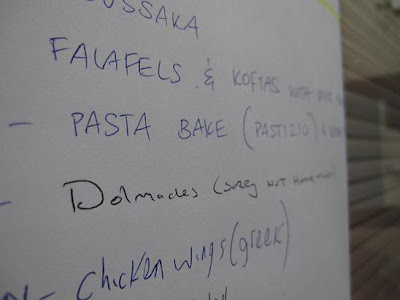 USSAKA
FALAFELS & KOFTAS WITH
- PASTA BAKE (PASTIZIO) &
- Dolmades (SORRY NOT
- Chicken wings (greek)